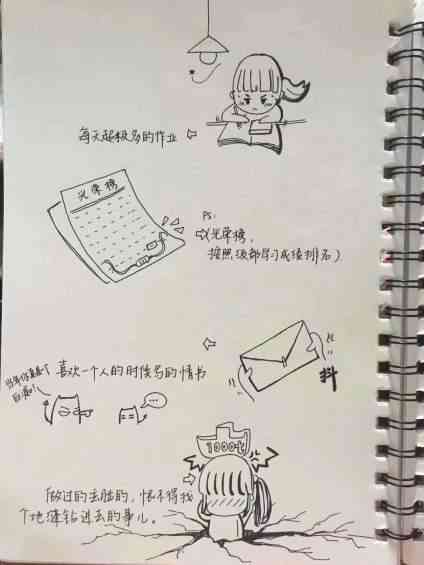 每天超级多的作业
光荣榜
PS:
(光荣榜,
按照级部学习成绩排名)
喜欢一个人的时候写的情书
当年你真是个
抖
1000t
做过的丢脸的,恨不得找
个地缝钻进去的事儿。